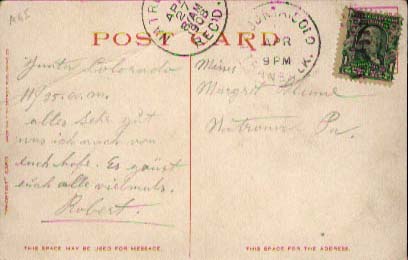 A65
NATRONA
APR
27
8 AM
1908
REC'D.
COLO
APR
9 PM
POST CARD
Colorado
11/25. a.m.
alles sehr gut
was ich auch von
euch hoffe. Es grüsst
euch alle vielmals.
Robert.
Margret
Natrona Pa.
THIS SPACE MAY BE USED FOR MESSAGE.
THIS SPACE IS FOR THE ADDRESS.